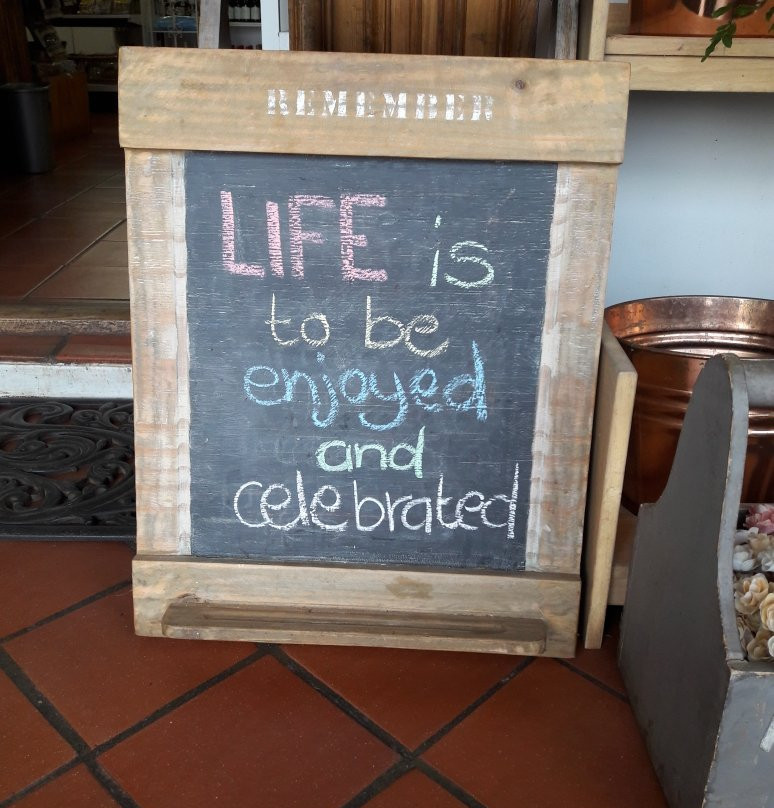 REMEMBER
LIFE is
to be
enjoyed
and
celebrated